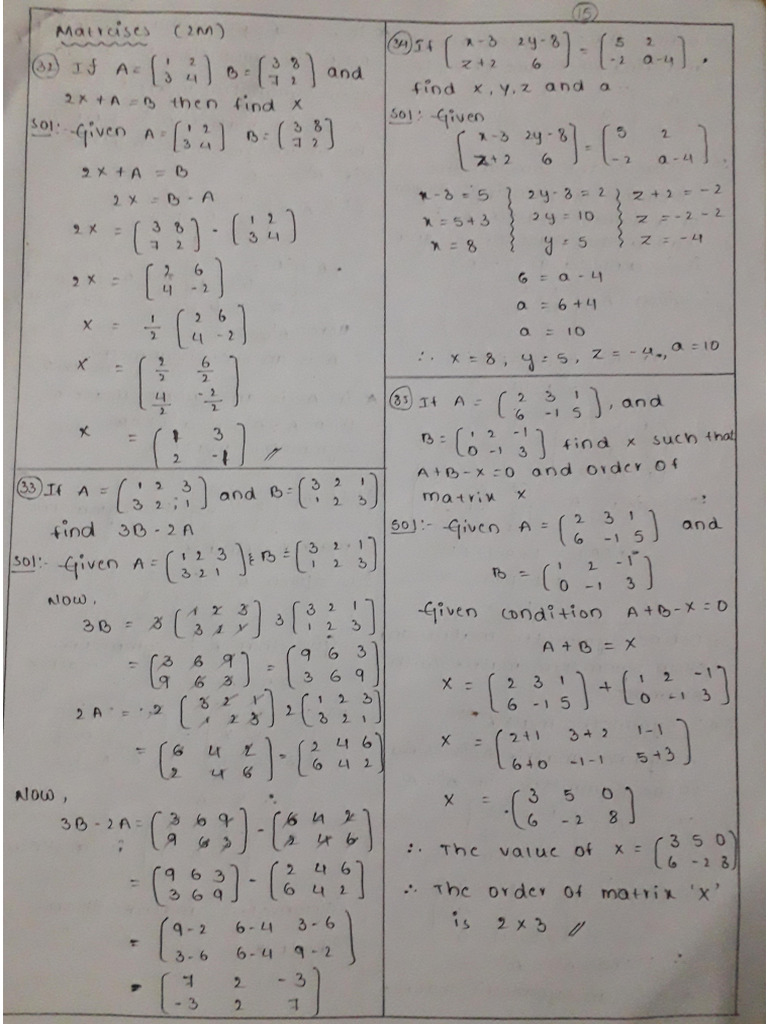 15
Matrcises (2M)
32 If A = ( 1 2 / 3 4 ) B = ( 3 8 / 7 2 ) and
2x + A = B then find x
Sol: Given A = ( 1 2 / 3 4 ) B = ( 3 8 / 7 2 )
2x + A = B
2x = B - A
2x = ( 3 8 / 7 2 ) - ( 1 2 / 3 4 )
2x = ( 2 6 / 4 -2 )
x = 1/2 ( 2 6 / 4 -2 )
x = ( 2/2 6/2 / 4/2 -2/2 )
x = ( 1 3 / 2 -1 ) //
33 If A = ( 1 2 3 / 3 2 1 ) and B = ( 3 2 1 / 1 2 3 )
find 3B - 2A
Sol:- Given A = ( 1 2 3 / 3 2 1 ) & B = ( 3 2 1 / 1 2 3 )
Now,
3B = 3 ( 1 2 3 / 3 2 1 ) 3 ( 3 2 1 / 1 2 3 )
= ( 3 6 9 / 9 6 3 ) = ( 9 6 3 / 3 6 9 )
2A = 2 ( 3 2 1 / 1 2 3 ) 2 ( 1 2 3 / 3 2 1 )
= ( 6 4 2 / 2 4 6 ) - ( 2 4 6 / 6 4 2 )
Now,
3B - 2A = ( 3 6 9 / 9 6 3 ) - ( 6 4 2 / 2 4 6 )
= ( 9 6 3 / 3 6 9 ) - ( 2 4 6 / 6 4 2 )
= ( 9-2 6-4 3-6 / 3-6 6-4 9-2 )
= ( 7 2 -3 / -3 2 7 )
34 If ( x-3 2y-8 / z+2 6 ) = ( 5 2 / -2 a-4 ),
find x, y, z and a
Sol: Given
( x-3 2y-8 / z+2 6 ) = ( 5 2 / -2 a-4 ).
x-3 = 5 } 2y-8 = 2 } z+2 = -2
x = 5+3 } 2y = 10 } z = -2-2
x = 8 } y = 5 } z = -4
6 = a - 4
a = 6+4
a = 10
∴ x = 8, y = 5, z = -4, a = 10
35 If A = ( 2 3 1 / 6 -1 5 ), and
B = ( 1 2 -1 / 0 -1 3 ) find x such that
A+B-x=0 and order of
matrix x
Sol:- Given A = ( 2 3 1 / 6 -1 5 ) and
B = ( 1 2 -1 / 0 -1 3 )
Given condition A+B-x=0
A+B = x
x = ( 2 3 1 / 6 -1 5 ) + ( 1 2 -1 / 0 -1 3 )
x = ( 2+1 3+2 1-1 / 6+0 -1-1 5+3 )
x = ( 3 5 0 / 6 -2 8 )
∴ The value of x = ( 3 5 0 / 6 -2 8 )
∴ The order of matrix 'x'
is 2 x 3 //